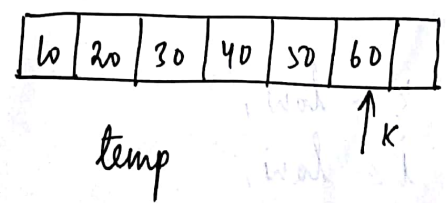 10 20 30 40 50 60
K
temp